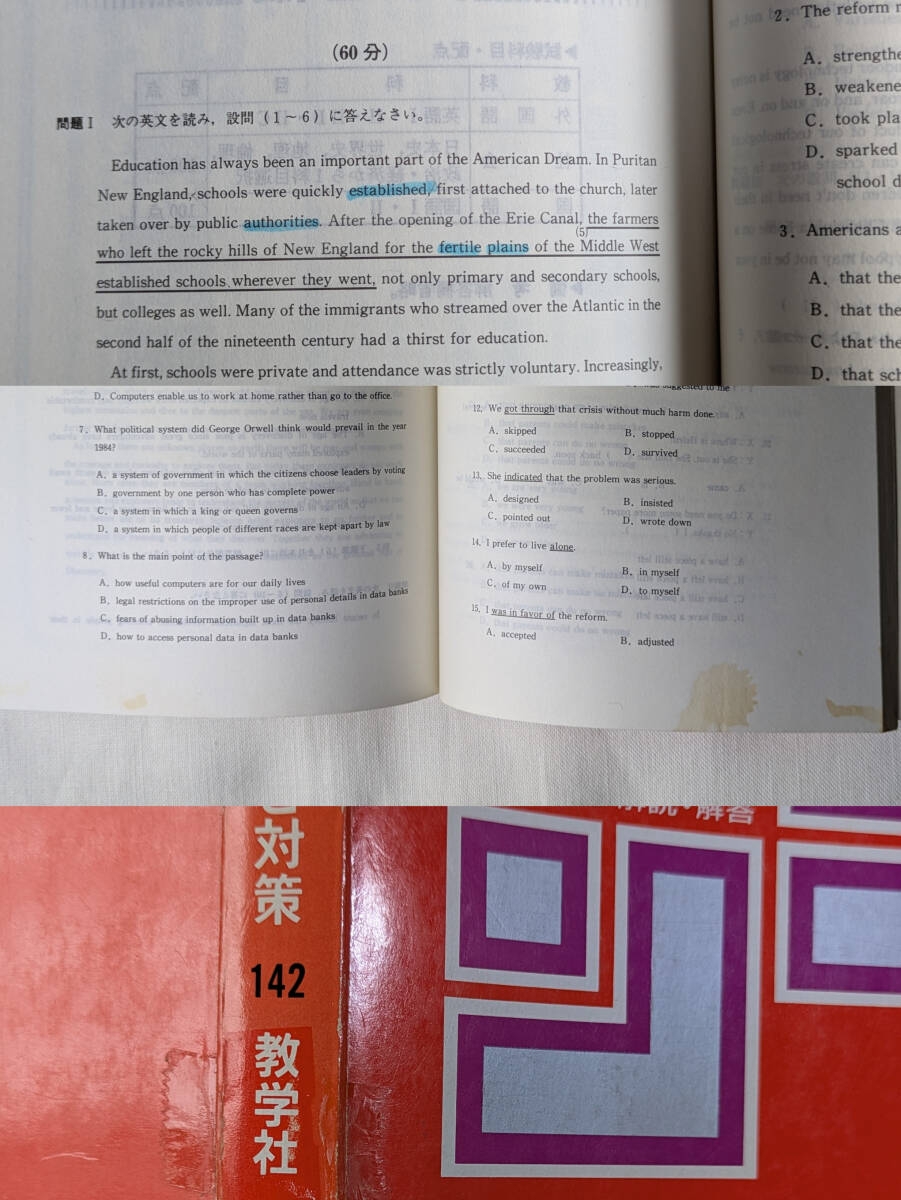 (60分)
問題Ⅰ 次の英文を読み，設問（1～6）に答えなさい。
Education has always been an important part of the American Dream. In Puritan
New England, schools were quickly established, first attached to the church, later
taken over by public authorities. After the opening of the Erie Canal, the farmers
(5)
who left the rocky hills of New England for the fertile plains of the Middle West
established schools wherever they went, not only primary and secondary schools,
but colleges as well. Many of the immigrants who streamed over the Atlantic in the
second half of the nineteenth century had a thirst for education.
At first, schools were private and attendance was strictly voluntary. Increasingly,
2. The reform
A. strengthe
B. weakene
C. took pla
D. sparked
school d
3. Americans a
A. that the
B. that the
C. that the
D. that sch
D. Computers enable us to work at home rather than go to the office.
7. What political system did George Orwell think would prevail in the year
1984?
A. a system of government in which the citizens choose leaders by voting
B. government by one person who has complete power
C. a system in which a king or queen governs
D. a system in which people of different races are kept apart by law
8. What is the main point of the passage?
A. how useful computers are for our daily lives
B. legal restrictions on the improper use of personal details in data banks
C. fears of abusing information built up in data banks
D. how to access personal data in data banks
suggested to me
12. We got through that crisis without much harm done.
A. skipped
B. stopped
C. succeeded
D. survived
13. She indicated that the problem was serious.
A. designed
B. insisted
C. pointed out
D. wrote down
14. I prefer to live alone.
A. by myself
B. in myself
C. of my own
D. to myself
15. I was in favor of the reform.
A. accepted
B. adjusted
対策
142
教学社
解説・解答